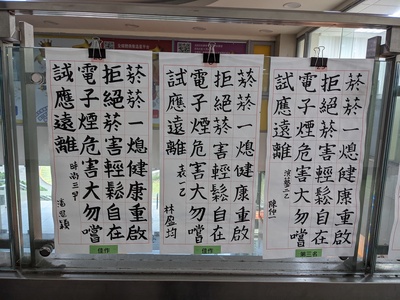 菸菸一熄健康重啟
拒絕菸害輕鬆自在
電子煙危害大勿嚐
試應遠離
時尚三甲
佳作
菸菸一熄健康重啟
拒絕菸害輕鬆自在
電子煙危害大勿嚐
試應遠離
林盈均
佳作
菸菸一熄健康重啟
拒絕菸害輕鬆自在
電子煙危害大勿嚐
試應遠離
演藝二乙
陳仲一
第三名